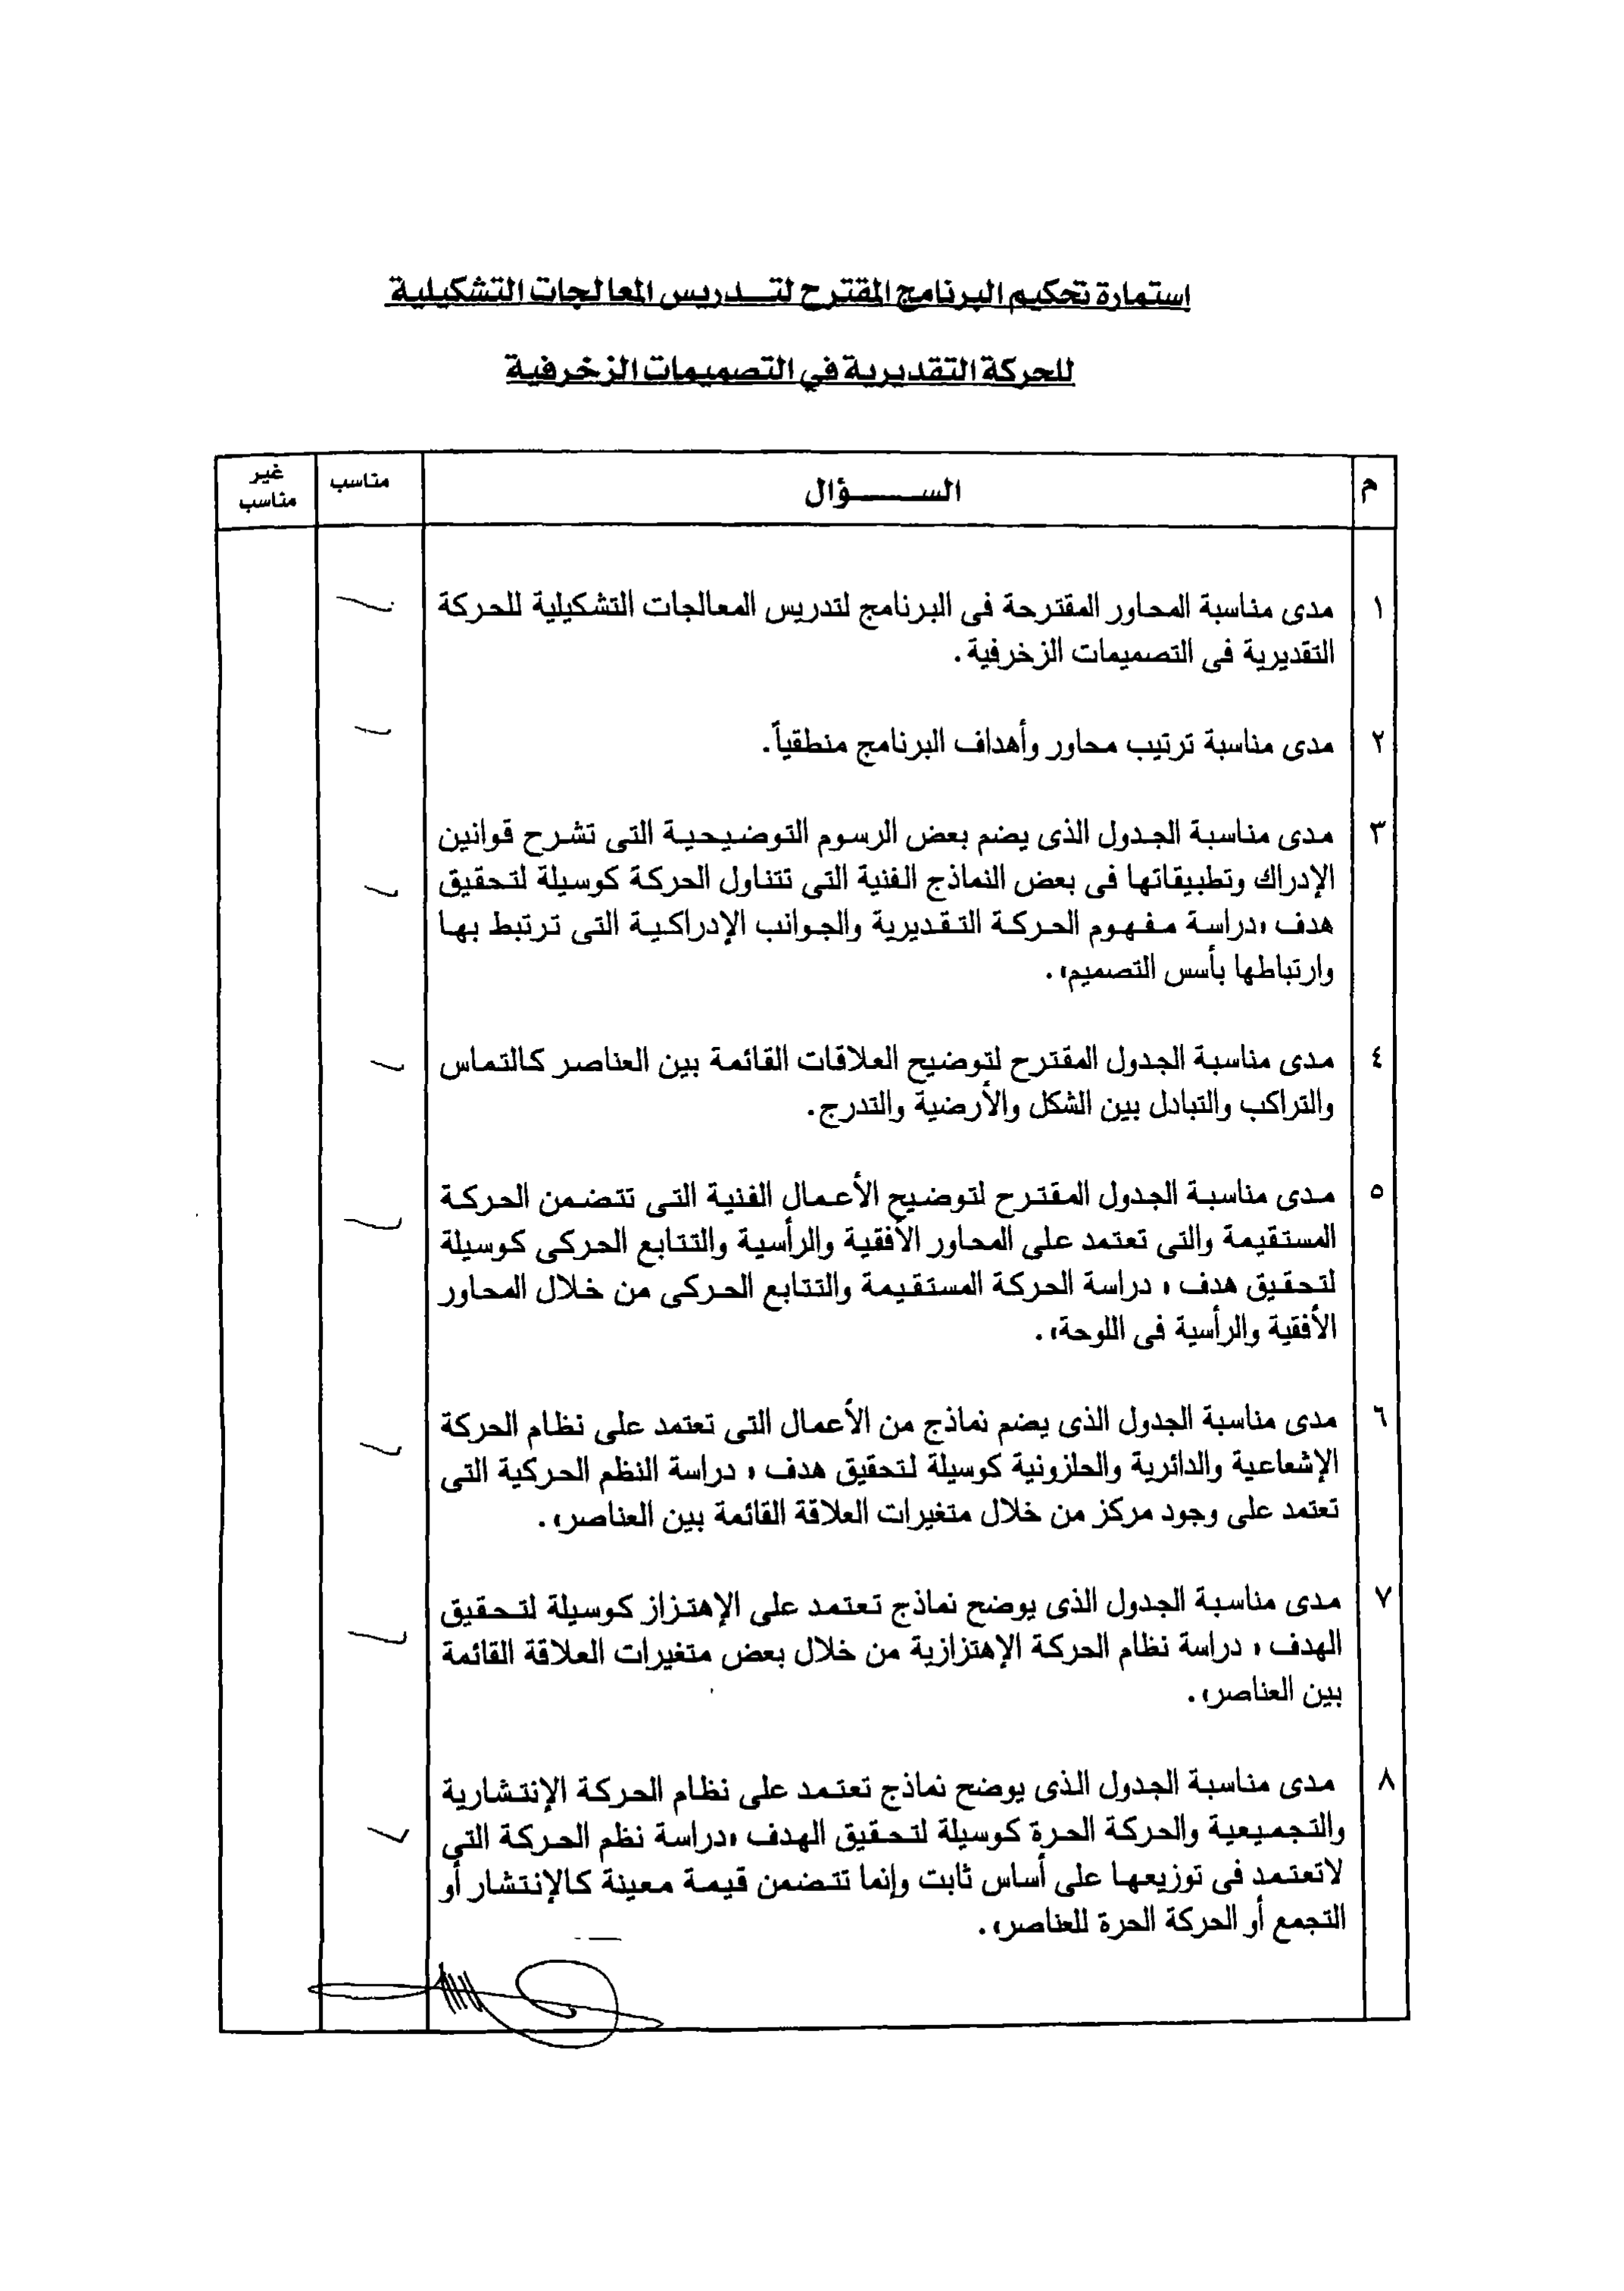 إستمارة تحكيم البرنامج المقترح لتـــدريس المعالجات التشكيلية
للحركة التقديرية في التصميمات الزخرفية
م
الســـــــؤال
مناسب
غير
مناسب
١
مدى مناسبة المحاور المقترحة فى البرنامج لتدريس المعالجات التشكيلية للحركة
التقديرية فى التصميمات الزخرفية .
٢
مدى مناسبة ترتيب محاور وأهداف البرنامج منطقياً .
٣
مدى مناسبة الجدول الذى يضم بعض الرسوم التوضيحية التى تشرح قوانين
الإدراك وتطبيقاتها فى بعض النماذج الفنية التى تتناول الحركة كوسيلة لتحقيق
هدف «دراسة مفهوم الحركة التقديرية والجوانب الإدراكية التى ترتبط بها
وارتباطها بأسس التصميم» .
٤
مدى مناسبة الجدول المقترح لتوضيح العلاقات القائمة بين العناصر كالتماس
والتراكب والتبادل بين الشكل والأرضية والتدرج .
٥
مدى مناسبة الجدول المقترح لتوضيح الأعمال الفنية التى تتضمن الحركة
المستقيمة والتى تعتمد على المحاور الأفقية والرأسية والتتابع الحركى كوسيلة
لتحقيق هدف « دراسة الحركة المستقيمة والتتابع الحركى من خلال المحاور
الأفقية والرأسية فى اللوحة» .
٦
مدى مناسبة الجدول الذى يضم نماذج من الأعمال التى تعتمد على نظام الحركة
الإشعاعية والدائرية والحلزونية كوسيلة لتحقيق هدف « دراسة النظم الحركية التى
تعتمد على وجود مركز من خلال متغيرات العلاقة القائمة بين العناصر» .
٧
مدى مناسبة الجدول الذى يوضح نماذج تعتمد على الإهتزاز كوسيلة لتحقيق
الهدف « دراسة نظام الحركة الإهتزازية من خلال بعض متغيرات العلاقة القائمة
بين العناصر» .
٨
مدى مناسبة الجدول الذى يوضح نماذج تعتمد على نظام الحركة الإنتشارية
والتجميعية والحركة الحرة كوسيلة لتحقيق الهدف «دراسة نظم الحركة التى
لاتعتمد فى توزيعها على أساس ثابت وإنما تتضمن قيمة معينة كالإنتشار أو
التجمع أو الحركة الحرة للعناصر» .